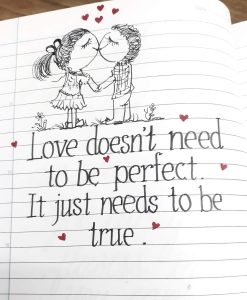 Love doesn't need
to be perfect.
It just needs to be
true.